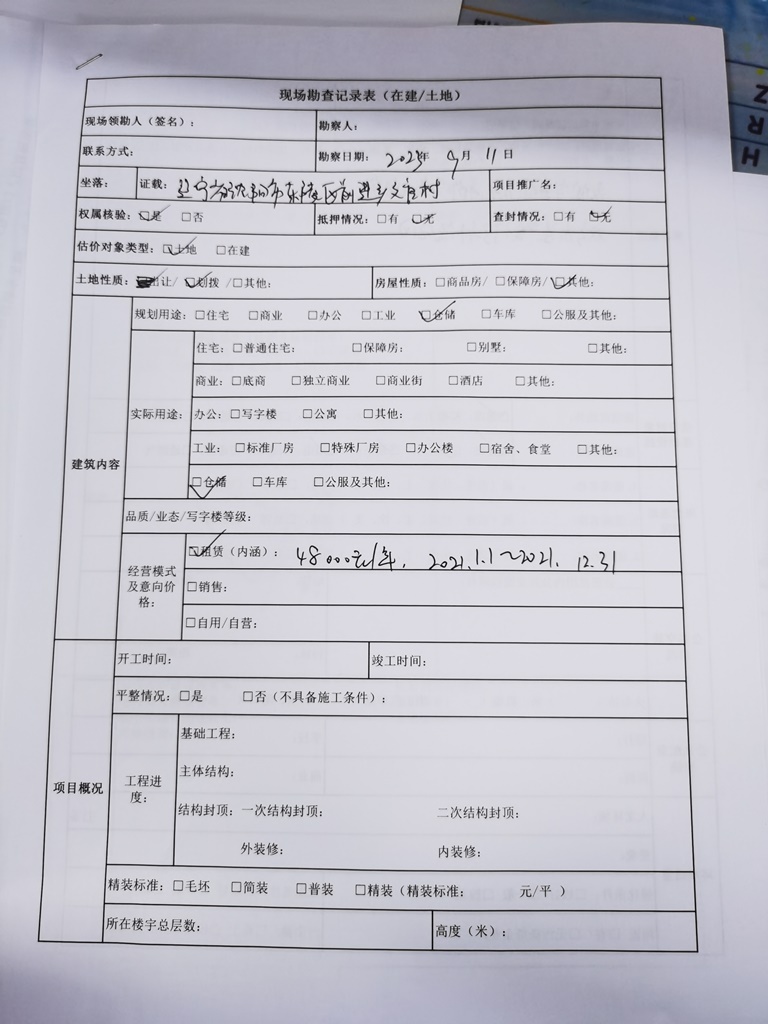 现场勘查记录表（在建/土地）
现场领勘人（签名）： 勘察人：
联系方式： 勘察日期： 2025年 9月 11日
坐落： 证载： 辽宁省沈阳市东陵区前进乡 村 项目推广名：
权属核验：☑是 □否 抵押情况：□有 ☑无 查封情况：□有 ☑无
估价对象类型：☑土地 □在建
土地性质：■出让/ ☑划拨 /□其他： 房屋性质：□商品房/ □保障房/ ☑其他：
规划用途：□住宅 □商业 □办公 □工业 ☑仓储 □车库 □公服及其他：
住宅：□普通住宅： □保障房： □别墅： □其他：
商业：□底商 □独立商业 □商业街 □酒店 □其他：
实际用途： 办公：□写字楼 □公寓 □其他：
工业：□标准厂房 □特殊厂房 □办公楼 □宿舍、食堂 □其他：
建筑内容
☑仓储 □车库 □公服及其他：
品质/业态/写字楼等级：
☑租赁（内涵）： 48000元/年. 2021.1.1～2021.12.31
经营模式
及意向价
格：
□销售：
□自用/自营：
开工时间： 竣工时间：
平整情况：□是 □否（不具备施工条件）：
基础工程：
主体结构：
项目概况
工程进
度：
结构封顶：一次结构封顶： 二次结构封顶：
外装修： 内装修：
精装标准：□毛坯 □简装 □普装 □精装（精装标准： 元/平 ）
所在楼宇总层数： 高度（米）：
H
R
Z